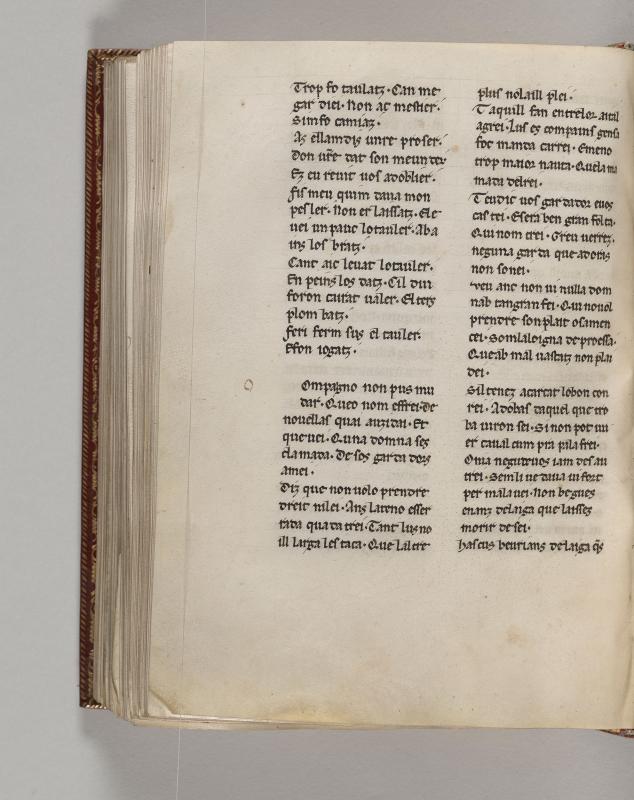 Trop fo taulatz. Can me
gar diei. Non ac mestier.
Si m fo camiatz.
Az ellam dis un re prosier.
Don vr̄e dat son menuder
Ez eu revit vos a doblier.
fis m eu qui m dava mon
pesler. non er laissatz. E le
vei un pauc lo tauler. Ab a
ins los bratz.
Cant aic levat lo tauler.
En peins los datz. E il dui
foron cairat valer. El terz
plom batz.
fori ferm sus el tauler.
E fon iogatz.
Ompagno non pus mu
dar. Queo nom effrei. De
novellas quai auzidai. Et
que vei. Q una domna ses
clamada. De ses gardadors
amei.
Diz que non volo prendre
dreit ni lei. Ans la teno esser
rada qua da trei. Tant lus no
ill larga les taca. Que laltre
plus nolaill plei.
T aquill fan entrelor aital
agrei. Lus es compains gens
foc manda carrei. E meno
trop maior nauta. Que la mai
nada del rei.
T eu dic vos gardador e vos
castei. E sera ben gran folia.
Qui nom crei. Greu verretz.
neguna garda que ad oras
non sonei.
veu anc non vi nulla dom
nab tan gran fei. Qui no vol
prendre son plait o sa mer
cei. Som la loigna de proessa.
Que ab malvastatz non plai
dei.
Sil tenez a cartat lo bon con
rei. Adobas daquel que tro
ba viron sei. Si non pot avi
er caval compra palafrei.
O na negu de vos iam des au
trei. Sem li ve dava vi fort
per malavei. Non begues
enanz de laiga que laisses
morir de sei.
hascus beurians de laiga qs̄